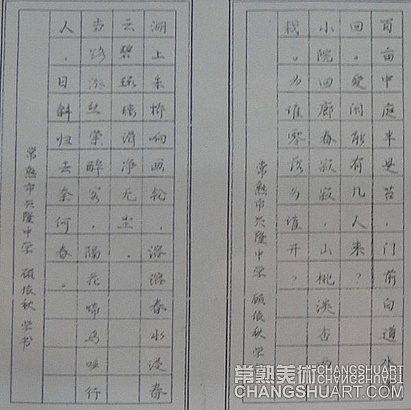 百亩中庭半是苔．门前白道水
回。爱闲能有几人来？
小院回廊春寂寂．山桃溪杏两
栽。为谁零落为谁开？
常熟市兴隆中学 顾依秋 学
湖上朱桥响画轮．溶溶春水浸春
云碧琉璃滑净无尘．
当路游丝萦醉客．隔花啼鸟唤行
人．日斜归去奈何春。
常熟市兴隆中学 顾依秋 学书
常熟美術 CHANGSHUART
CHANGSHUART.COM